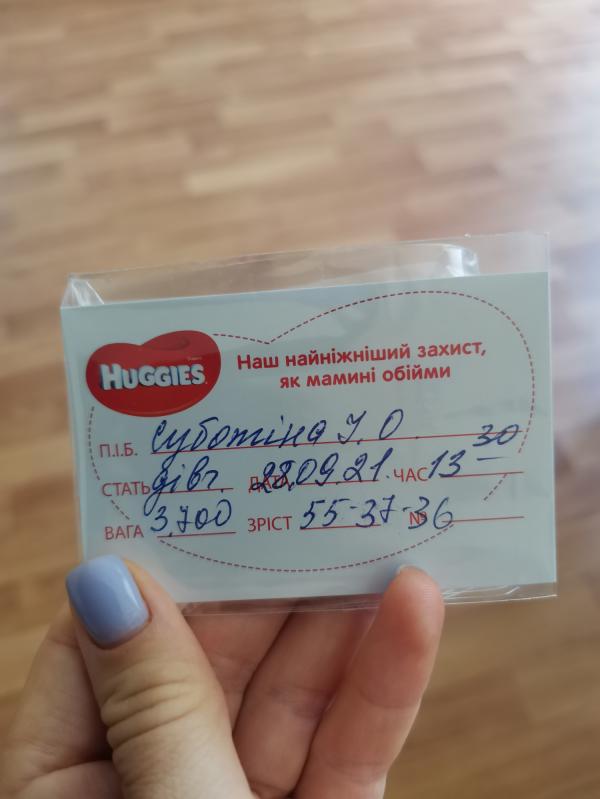 HUGGIES
Наш найніжніший захист,
як мамині обійми
П.І.Б. Суботіна І. О.
СТАТЬ дівч. ДАТА 28.09.21. ЧАС 13 30
ВАГА 3.700 ЗРІСТ 55-37-36 №